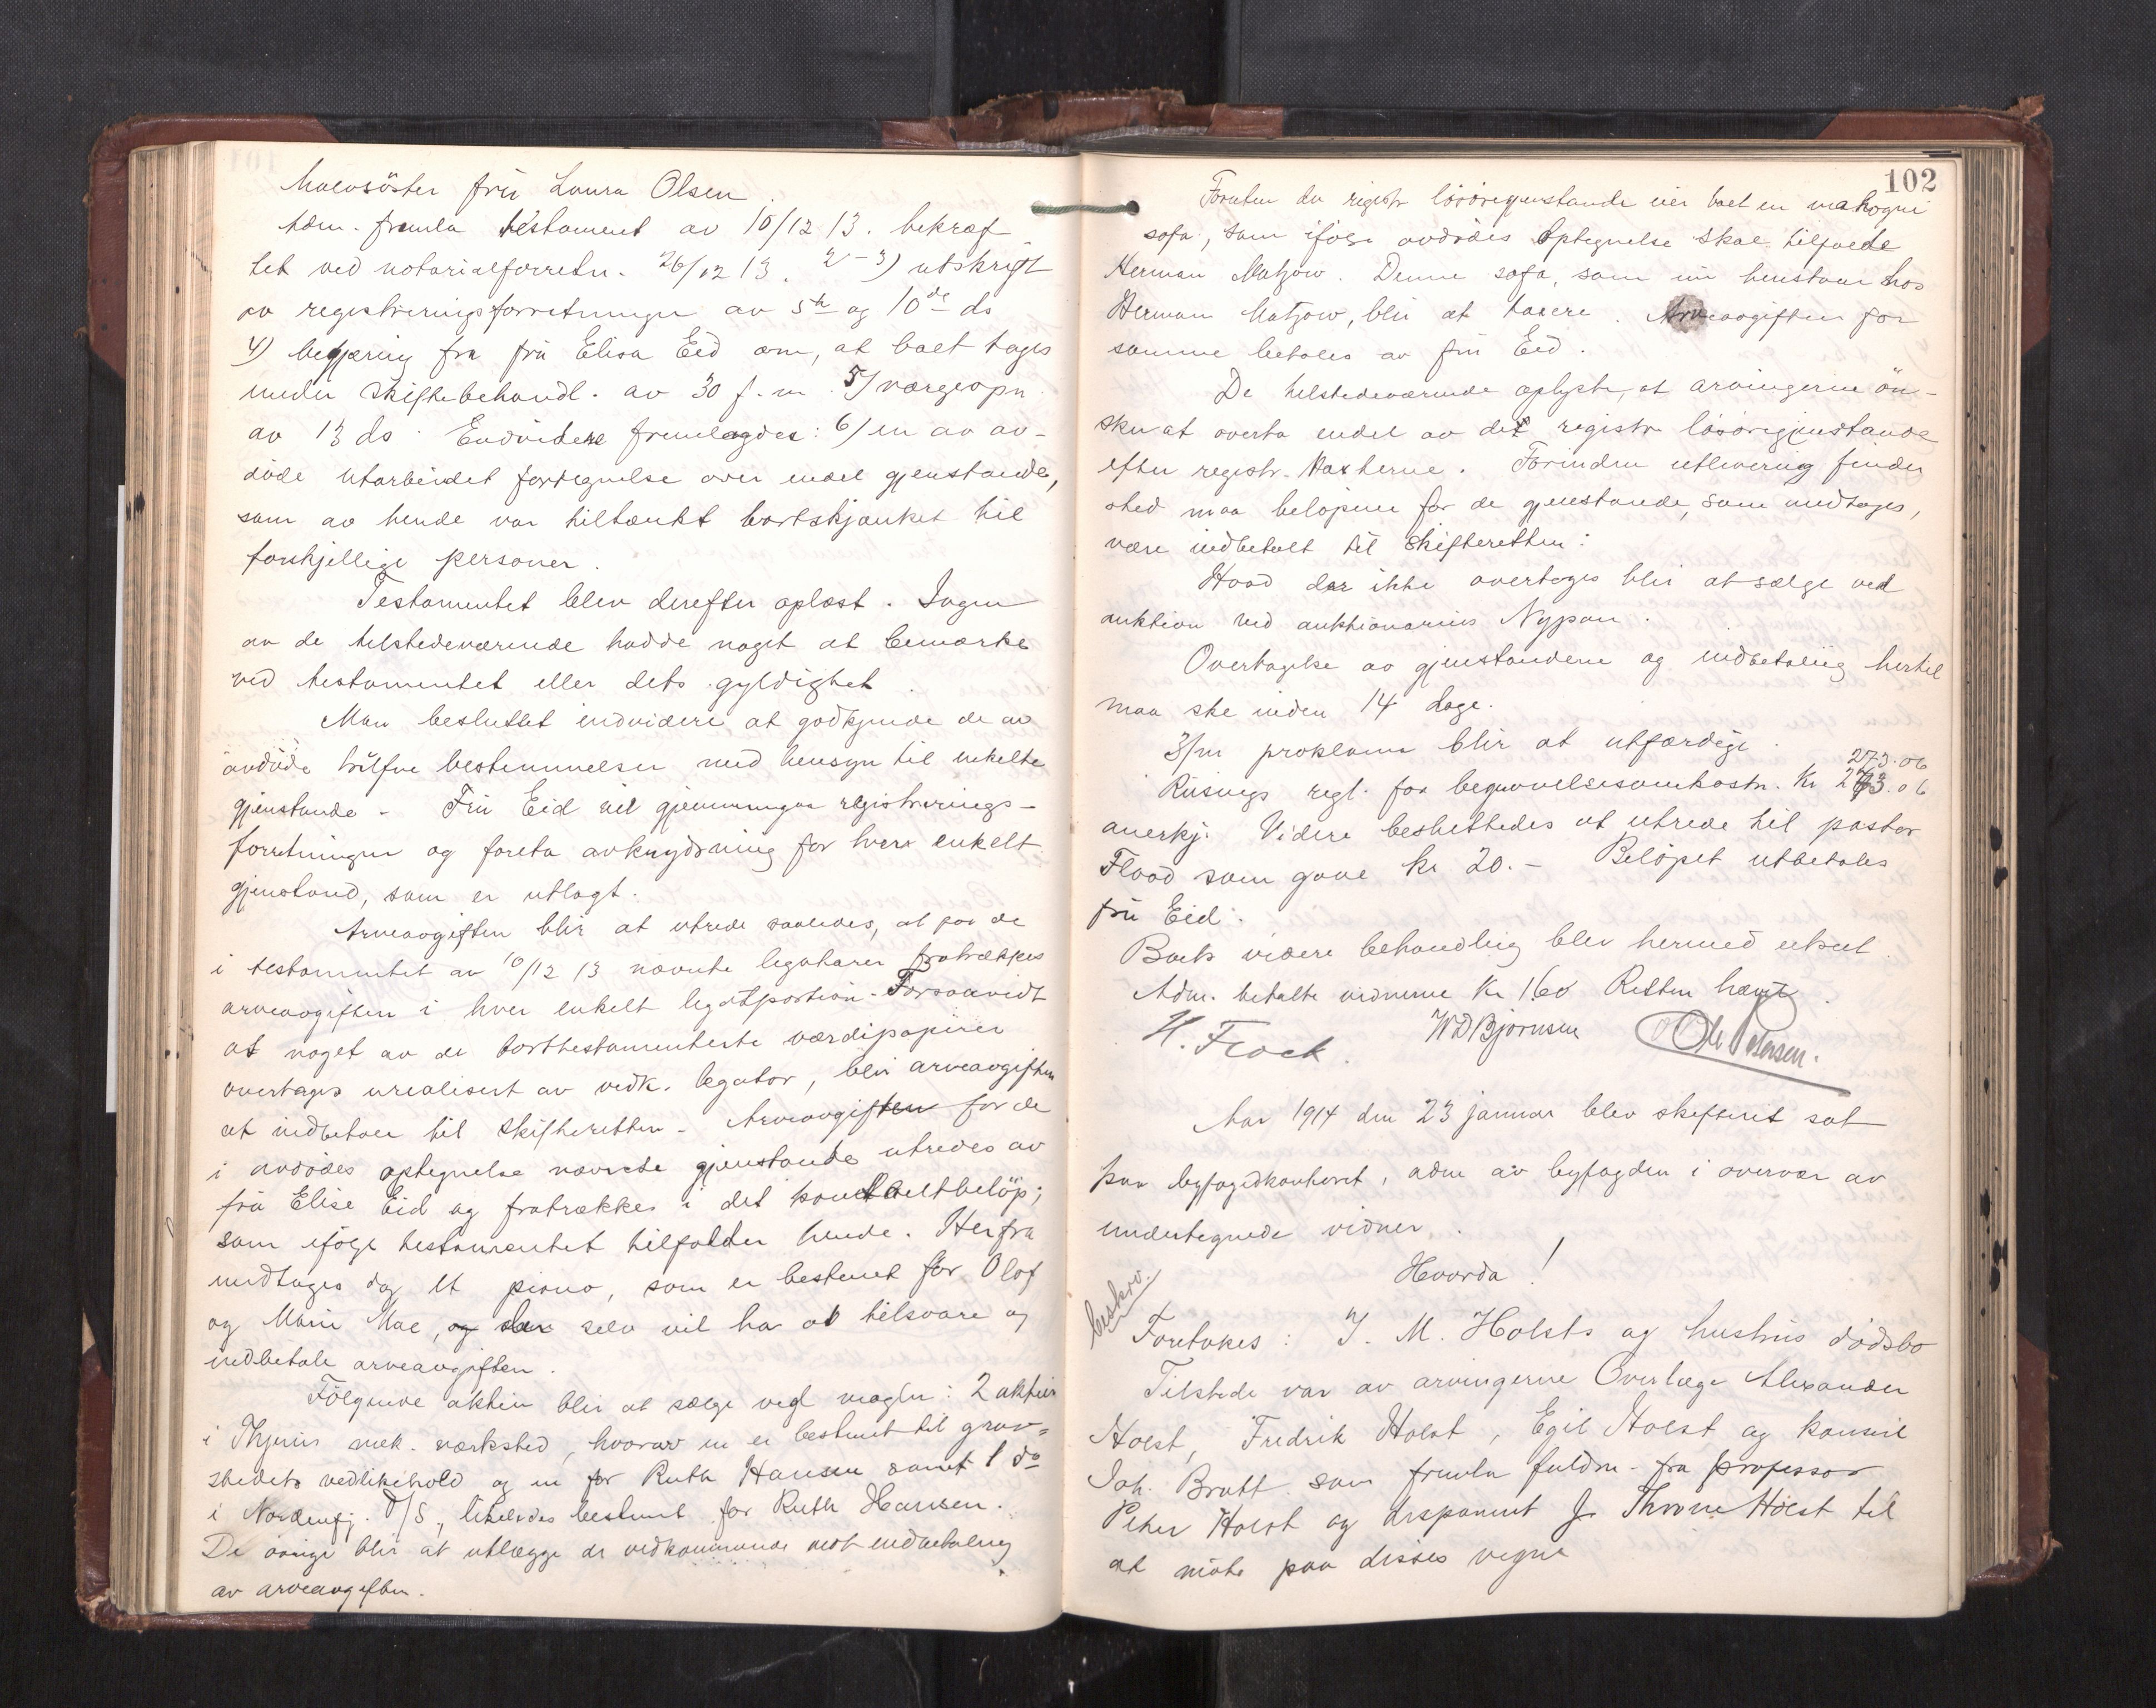 halvsöster frü Laura Olsen.
Adm. fremla testament av 10/12 13. bekræf
tet ved notarialforretn. 26/12 13. 2-3) utskrift
av registreringsforretninger av 5te og 10de ds
4) begjæring fra frü Elisa Eid om, at boet tages
under skiftebehandl. av 30 f. m. 5/ værgeopn.
av 13 ds. Endvidere fremlagdes: 6/ en av av-
döde utarbeidet fortegnelse over endel gjenstande,
som av hende var tiltænkt bortskjænket til
forskjellige personer.
Testamentet blev derefter oplæst. Ingen
av de tilstedeværende hadde noget at bemærke
ved testamentet eller dets gyldighet.
Man besluttet endvidere at godkjende de av
avdöde trufne bestemmelser med hensyn til enkelte
gjenstande - Frü Eid vil gjennemgaa registrerings-
forretningen og foreta avkrydsning for hver enkelt
gjenstand, som er utlagt.
Arveavgiften blir at utrede saaledes, at for de
i testamentet av 10/12 13 nævnte legatarer fratrækkes
arveavgiften i hver enkelt legatportion. Forsaavidt
at noget av de borttestamenterte værdipapirer
overtages urealisert av vedk. legator, blir arveavgiften
at indbetale til skifteretten - Arveavgiften for de
i avdödes optegnelse nævnte gjenstande utredes av
frü Elise Eid og fratrækkes i det kontantbelöp;
som ifölge testamentet tilfalder hende. Herfra
undtages dog et piano, som er bestemt for Olof
og Marie Moe, og der selv vil ha at tilsvare og
indbetale arveavgiften.
Fölgende aktier blir at sælge ved megler: 2 aktier
i Thjems mek. værksted, hvorav en er bestemt til grav-
stedets vedlikehold og en for Ruth Hansen samt 1 do
i Nordenfj. D/S., likeledes bestemt for Ruth Hansen.
De övrige blir at utlægge de vedkommende mot indbetaling
av arveavgiften.
102
Foruten de registr lösöregjenstande eier boet en mahogni
sofa, som ifölge avdödes optegnelse skal tilfalde
Herman Matzow. Denne sofa, som nu henstaar hos
Herman Matzow, blir at taxere. Arveavgiften for
samme betales av frü Eid.
De tilstedeværende oplyste, at arvingerne ön-
sker at overta endel av det registr. lösöregjenstande
efter registr. taxterne. Forinden utlevering finder
sted maa belöpene for de gjenstande, som undtages,
være indbetalt til Skifteretten:
Hvad der ikke overtages blir at sælge ved
auktion ved auktionarius Nypan.
Overtagelse av gjenstandene og indbetaling hertil
maa ske inden 14 dage.
3/m proklama blir at utfærdige.
273.06
Riisings regl. for begravelsesomkostn. Kr 273.06
anerkj. Videre besluttedes at utrede til pastor
Flood som gave kr 20.- Belöpet utbetales
frü Eid.
Boets videre behandling blev hermed utsat.
Adm. betalte vidnerne Kr 1.60 Retten hævet.
H. Flock. WDBjørnsen Ole Petersen.
Aar 1914 den 23 januar blev skifteret sat
paa byfogdkontoret, adm av byfogden i overvær av
undertegnede vidner.
Hvorda!
beskr.
Foretokes: J. M. Holsts og hustrus dödsbo
Tilstede var av arvingerne Overlæge Alexander
Holst, Fredrik Holst, Egil Holst og konsul
Joh. Bratt som fremla fuldm. fra professor
Peter Holst og disponent J. Throne Holst til
at möte paa disses vegne